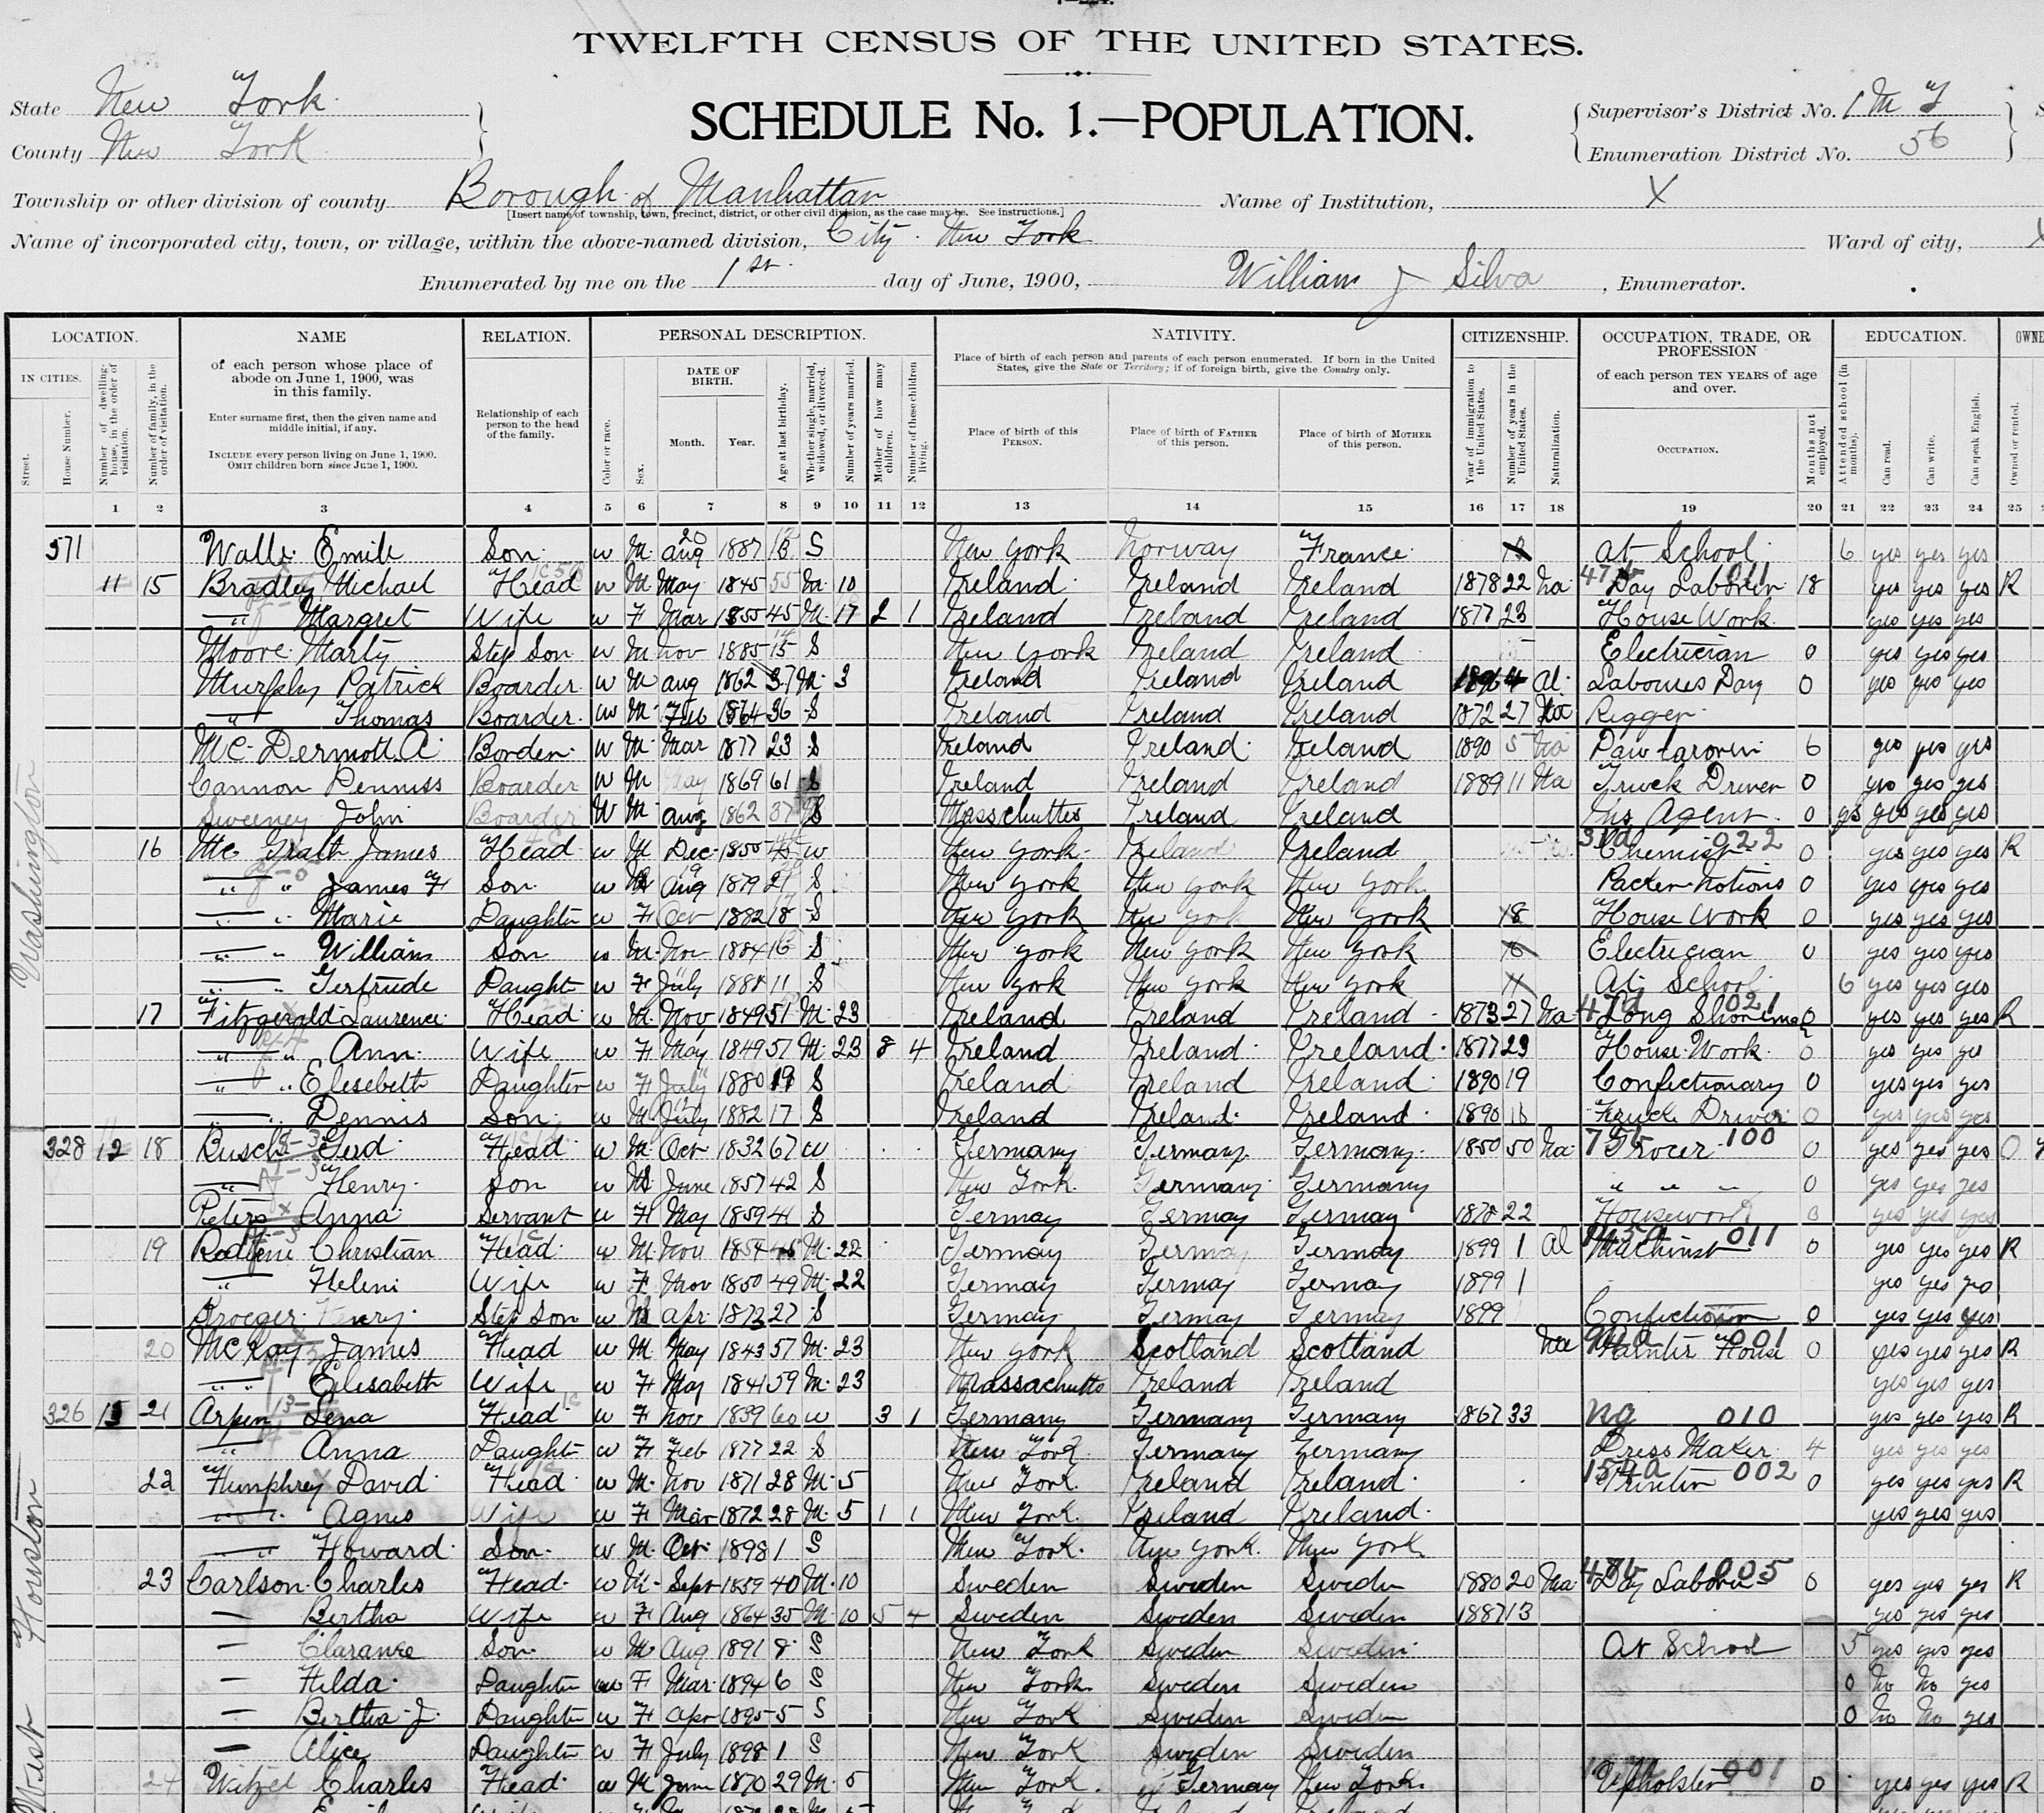 TWELFTH CENSUS OF THE UNITED STATES.
State New York
SCHEDULE No. 1.—POPULATION.
Supervisor's District No. 1
County New York
Enumeration District No. 56
Township or other division of county Borough of Manhattan
Name of Institution, X
[Insert name of township, town, precinct, district, or other civil division, as the case may be. See instructions.]
Name of incorporated city, town, or village, within the above-named division, City New York
Ward of city,
Enumerated by me on the 1st day of June, 1900, William J Silva, Enumerator.
LOCATION.
IN CITIES.
Street.
House Number.
Number of dwelling-house, in the order of visitation.
Number of family, in the order of visitation.
NAME
of each person whose place of abode on June 1, 1900, was in this family.
Enter surname first, then the given name and middle initial, if any.
INCLUDE every person living on June 1, 1900.
OMIT children born since June 1, 1900.
RELATION.
Relationship of each person to the head of the family.
PERSONAL DESCRIPTION.
Color or race.
Sex.
DATE OF BIRTH.
Month.
Year.
Age at last birthday.
Whether single, married, widowed, or divorced.
Number of years married.
Mother of how many children.
Number of these children living.
NATIVITY.
Place of birth of each person and parents of each person enumerated. If born in the United States, give the State or Territory; if of foreign birth, give the Country only.
Place of birth of this PERSON.
Place of birth of FATHER of this person.
Place of birth of MOTHER of this person.
CITIZENSHIP.
Year of immigration to the United States.
Number of years in the United States.
Naturalization.
OCCUPATION, TRADE, OR PROFESSION
of each person TEN YEARS of age and over.
OCCUPATION.
Months not employed.
EDUCATION.
Attended school (in months).
Can read.
Can write.
Can speak English.
Owned or rented.
1 2 3 4 5 6 7 8 9 10 11 12 13 14 15 16 17 18 19 20 21 22 23 24 25
Washington
West Houston
571 Emile Son W M Aug 1887 S New York Norway France At School 6 yes yes yes
11 15 Bradley Michael Head W M May 1845 55 M 10 Ireland Ireland Ireland 1878 22 Na Day Laborer 18 yes yes yes R
" Margret Wife W F Mar 1855 45 M 17 2 1 Ireland Ireland Ireland 1877 23 House Work yes yes yes
Moore Marty Step Son W M Nov 1885 15 S New York Ireland Ireland Electrician 0 yes yes yes
Murphy Patrick Boarder W M Aug 1862 37 M 3 Ireland Ireland Ireland 1896 4 Al Day 0 yes yes yes
" Thomas Boarder W M Feb 1864 36 S Ireland Ireland Ireland 1872 27 Rigger
Mc Dermott A W M Mar 1877 23 S Ireland Ireland Ireland 1890 Na 6 yes yes yes
Cannon Boarder W M 1869 61 S Ireland Ireland Ireland 1889 11 Na Truck Driver 0 yes yes yes
Sweeney John Boarder W M Aug 1862 37 S Massachuttes Ireland Ireland Ins Agent 0 yes yes yes yes
16 James Head W M Dec 1855 W New York Ireland Ireland Chemist 022 0 yes yes yes R
" " James F Son W M Aug 1879 S New York New York New York Packer Notions 0 yes yes yes
" " Marie Daughter W F Oct 1882 18 S New York New York New York House Work 0 yes yes yes
" " William Son W M Nov 1884 S New York New York New York Electrician 0 yes yes yes
" " Gertrude Daught W F July 1888 11 S New York New York New York At School 6 yes yes yes
17 Fitzgerald Laurence Head W M Nov 1849 51 M 23 Ireland Ireland Ireland 1873 27 Na Long Shoreman yes yes yes R
" " Ann Wife W F May 1849 51 M 23 8 4 Ireland Ireland Ireland 1877 23 House Work 0 yes yes yes
" " Elesebeth Daughter W F July 1880 19 S Ireland Ireland Ireland 1890 19 Confectionary 0 yes yes yes
" " Dennis Son W M July 1882 17 S Ireland Ireland Ireland 1890 Truck Driver 0 yes yes yes
328 12 18 Busch Head W M Oct 1832 67 W Germany Germany Germany 1850 50 Na Grocer 100 0 yes yes yes O
" Henry Son W M June 1857 42 S New York Germany Germany " " " 0 yes yes yes
Peters Anna Servant W F May 1859 41 S Germay Germay Germay 1878 22 Housework 0 yes yes yes
19 Christian Head W M Nov 1854 45 M 22 Germay Germay Germay 1899 1 Al Machinist 011 0 yes yes yes R
" Heleni Wife W F Nov 1850 49 M 22 Germay Germay Germay 1899 1 yes yes yes
Step Son W M Apr 1873 27 S Germay Germay Germay 1899 0 yes yes yes
20 McKay James Head W M May 1843 57 M 23 New York Scotland Scotland Na Painter House 001 0 yes yes yes R
" " Elisabeth Wife W F May 1841 59 M 23 Massachutts Ireland Ireland yes yes yes
326 13 21 Arpen Lena Head W F Nov 1839 60 W 3 1 Germany Germany Germany 1867 33 ng 010 yes yes yes R
" Anna Daught W F Feb 1877 22 S New York Germany Germany Dress Maker 4 yes yes yes
22 Humphrey David Head W M Nov 1871 28 M 5 New York Ireland Ireland Printer 002 0 yes yes yes R
" " Agnes Wife W F Mar 1872 28 M 5 1 1 New York Ireland Ireland yes yes yes
" " Howard Son W M Oct 1898 1 S New York New York New York
23 Carlson Charles Head W M Sept 1859 40 M 10 Sweden Sweden Sweden 1880 20 Na Day Laborer 005 0 yes yes yes R
— Bertha Wife W F Aug 1864 35 M 10 5 4 Sweden Sweden Sweden 1887 13 yes yes yes
— Clarance Son W M Aug 1891 8 S New York Sweden Sweden At School 5 yes yes yes
— Hilda Daughter W F Mar 1894 6 S New York Sweden Sweden 0 No No yes
— Bertha J Daughter W F Apr 1895 5 S New York Sweden Sweden 0 No No yes
— Alice Daughter W F July 1898 1 S New York Sweden Sweden
24 Witzel Charles Head W M June 1870 29 M 5 New York Germany New York Upholster 001 0 yes yes yes R